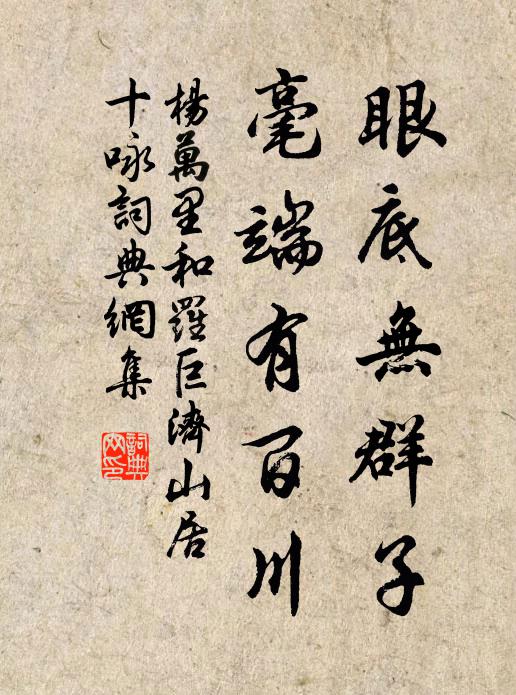 眼底無群子
毫端有百川
楊萬里和羅巨濟山居
十咏詞典網集
詞典網印